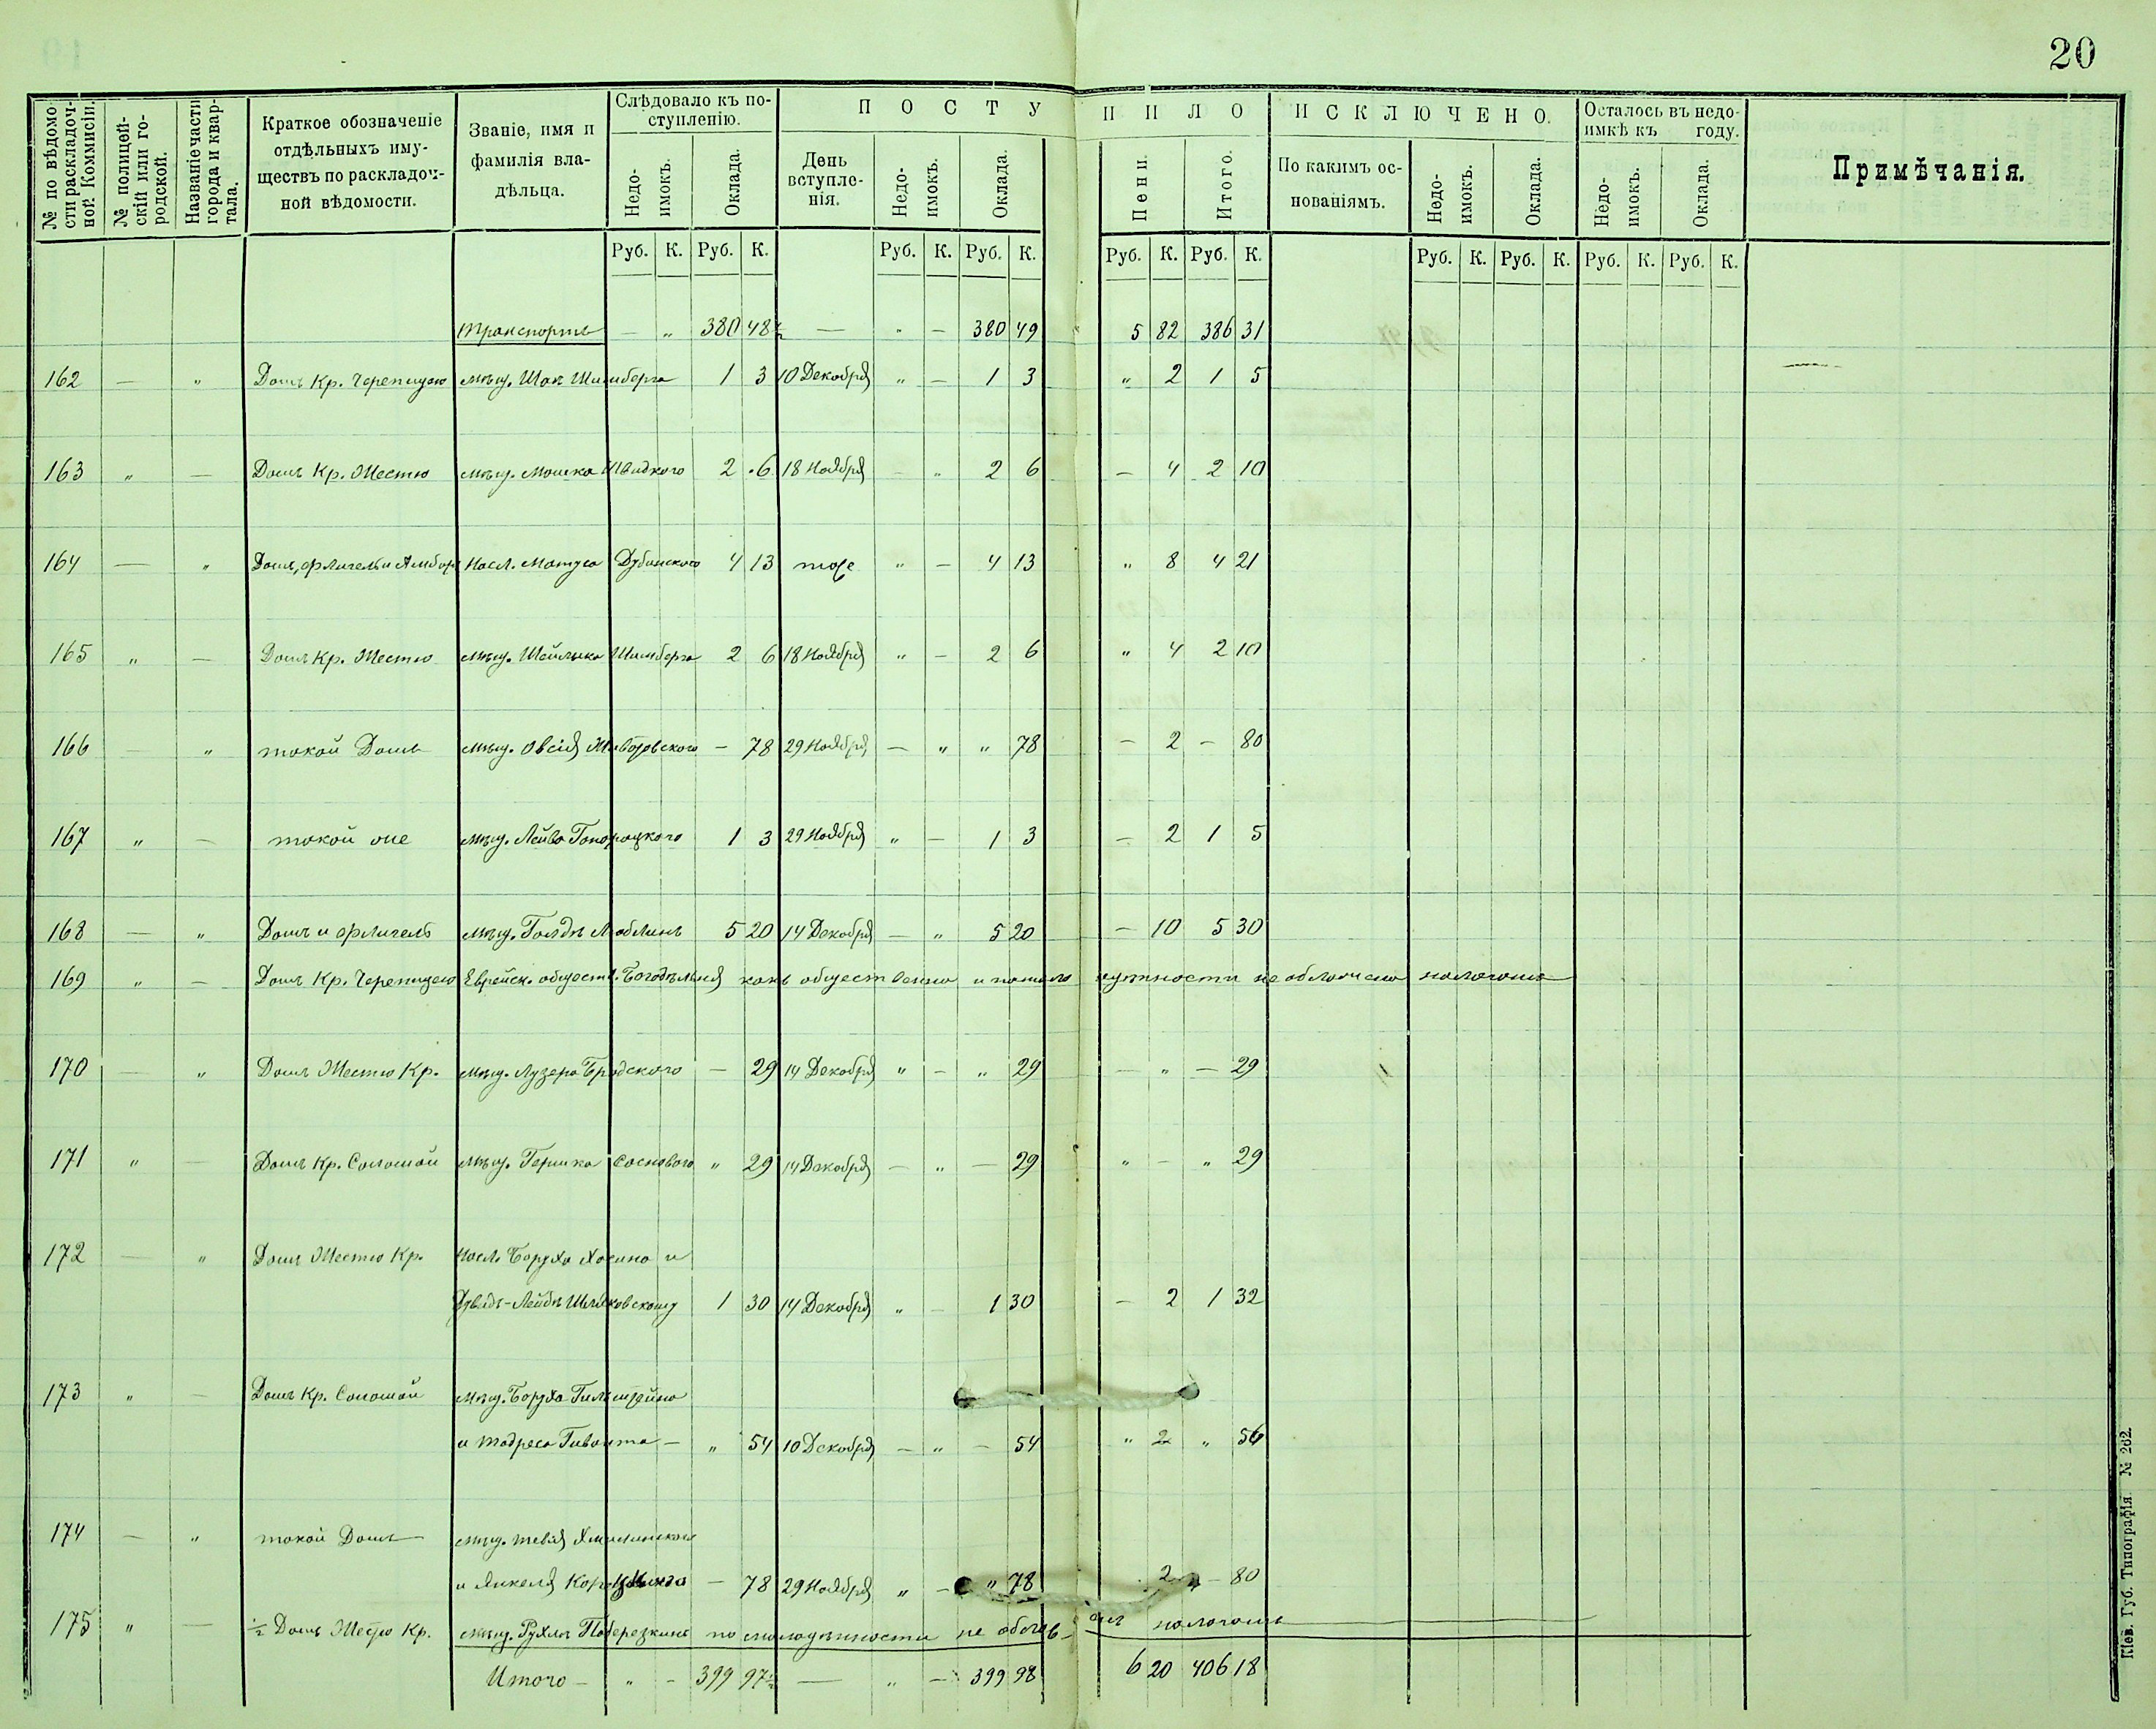 20
№ по вѣдомости раскладочной Коммисіи.
№ полицейскій или городской.
Названіе части города и квартала.
Краткое обозначеніе отдѣльныхъ имуществъ по раскладочной вѣдомости.
Званіе, имя и фамилія владѣльца.
Слѣдовало къ поступленію.
Недоимокъ.
Оклада.
ПОСТУПИЛО
День вступленія.
Недоимокъ.
Оклада.
Пени.
Итого.
ИСКЛЮЧЕНО.
По какимъ основаніямъ.
Недоимокъ.
Оклада.
Осталось въ недоимкѣ къ году.
Недоимокъ.
Оклада.
Примѣчанія.
Руб. К. Руб. К. Руб. К. Руб. К. Руб. К. Руб. К. Руб. К. Руб. К. Руб. К. Руб. К.
Транспортъ — „ 380 48½ — „ — 380 49 5 82 386 31
162 — „ Домъ Кр. Черепицею мѣщ. Шимберга 1 3 10 Декабря „ — 1 3 „ 2 1 5
163 „ — Домъ Кр. Жестью мѣщ. Мошка Швидкого 2 6 18 Ноября — „ 2 6 — 4 2 10
164 — „ Домъ, флигель и Амбаръ Насл. Матуса Дубинского 4 13 тоже „ — 4 13 „ 8 4 21
165 „ — Домъ Кр. Жестью мѣщ. Шимберга 2 6 18 Ноября „ — 2 6 „ 4 2 10
166 — „ такой Домъ мѣщ. Овсія — 78 29 Ноября — „ „ 78 — 2 — 80
167 „ — такой же мѣщ. Лейба 1 3 29 Ноября „ — 1 3 — 2 1 5
168 — „ Домъ и флигель мѣщ. 5 20 14 Декабря — „ 5 20 — 10 5 30
169 „ — Домъ Кр. Черепицею Еврейск. обществ. Богодѣльня какъ общественно и по мало не обложено налогомъ
170 — „ Домъ Жестью Кр. мѣщ. Лузера Бродского — 29 14 Декабря „ — „ 29 — „ — 29
171 „ — Домъ Кр. Соломой мѣщ. Гершка Соснового „ 29 14 Декабря — „ — 29 „ — „ 29
172 — „ Домъ Жестью Кр. Насл. Боруха Хасина и
1 30 14 Декабря „ — 1 30 — 2 1 32
173 „ — Домъ Кр. Соломой мѣщ. Боруха
и Тодреса — „ 54 10 Декабря — „ — 54 „ 2 „ 56
174 — „ такой Домъ мѣщ. Тевія
и Янкеля — 78 29 Ноября „ — „ 78 2 — 80
175 „ — ½ Домъ Жестью Кр. мѣщ. Рухля по малоцѣнности не налогомъ
Итого — „ — 399 97½ — „ — 399 98 6 20 406 18
Кіев. Губ. Типографія. № 262.